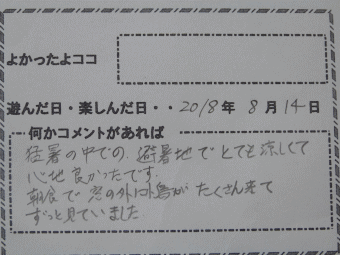 よかったよココ
遊んだ日・楽しんだ日・・2018年 8月14日
何かコメントがあれば
猛暑の中での、避暑地でとても涼しくて
心地良かったです。
朝食で窓の外に小鳥がたくさん来て
ずっと見ていました